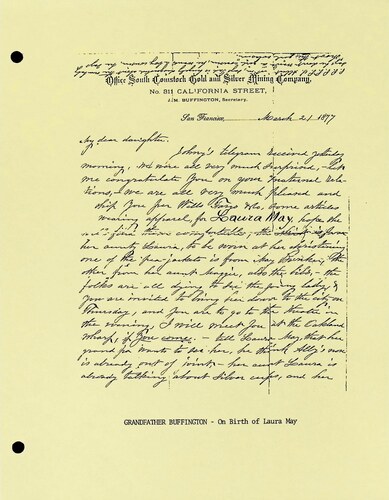 Office South Comstock Gold and Silver Mining Company,
No. 811 CALIFORNIA STREET,
J. M. BUFFINGTON, Secretary.
San Francisco, March 21 1877
My dear daughter,
Johny's telegram received yesterday
morning, we were all very much surprised, let
me congratulate you on your maternal rela-
tions, we are all very much pleased and
ship you per Wells Fargo & Co, some articles
wearing apparel, for Laura May, hope she
will find them comfortable, the is from
her aunt Laura, to be worn at her christening
one of the jackets is from May the
other from her aunt Maggie, also the bibs, the
folks are all dying to see the young lady &
you are invited to bring her down to the city on
Thursday, and you are to go to the theater in
the evening I will meet you at the Oakland
wharf, if you come. tell Laura May, that her
grand pa wants to see her, he think Ally's nose
is already out of joint, her aunt Laura is
already talking about silver cups, and her
GRANDFATHER BUFFINGTON - On Birth of Laura May